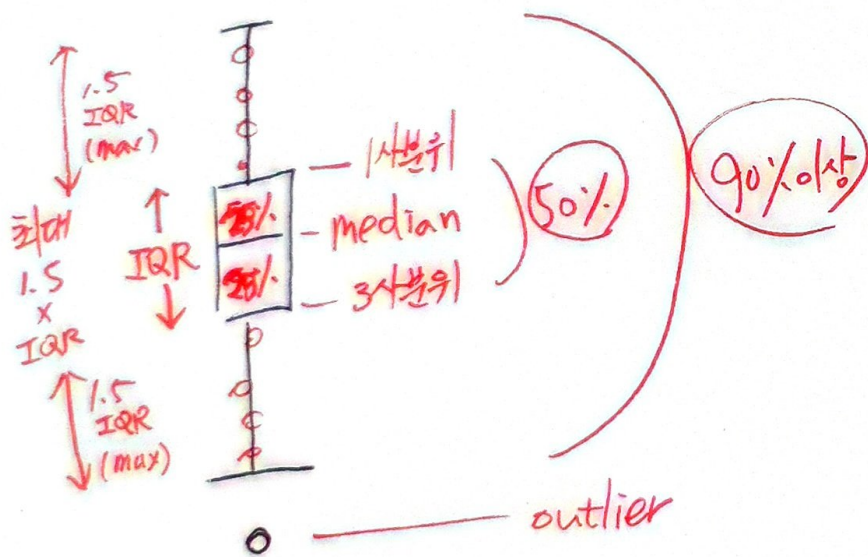 1.5
IQR
(max)
최대
1.5
x
IQR
IQR
25%
25%
1사분위
median
3사분위
50%
90%이상
1.5
IQR
(max)
outlier